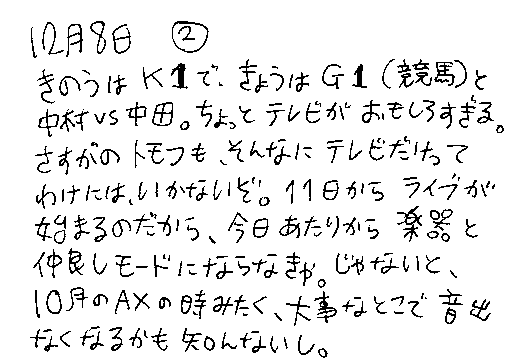 12月8日 ②
きのうはK1で、きょうはG1(競馬)と
中村vs中田。ちょっとテレビがおもしろすぎる。
さすがのトモフも、そんなにテレビだけって
わけには、いかないぞ。11日からライブが
始まるのだから、今日あたりから楽器と
仲良しモードにならなきゃ。じゃないと、
10月のAXの時みたく、大事なとこで音出
なくなるかも知んないし。